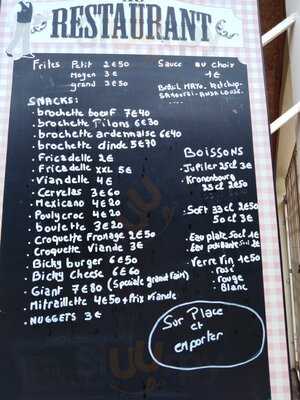 RESTAURANT
Frites Petit 2€50
Moyen 3€
grand 3€50
Sauce au choix
1€
MAYO. Ketchup-
SNACKS:
. brochette boeuf 7€40
. brochette Pilons 6€30
. brochette ardennaise 6€40
. brochette dinde 5€70
. Fricadelle 2€
. Fricadelle XXL 5€
. Viandelle 4€
. Cervelas 3€60
. Mexicano 4€20
. Poulycroc 4€20
. boulette 3€20
. Croquette Fromage 2€50
. Croquette Viande 3€
. Bicky burger 6€50
. Bicky Cheese 6€60
. Giant 7€80 (Speciale grand faim)
. Mitraillette 4€50 + Prix viande
. NUGGETS 3€
BOISSONS
. Jupiler 25cl 3€
. Kronenbourg
25cl 2€50
. Soft 33cl 2€50
50cl 3€
. Eau plate 50cl 1€
. Verre Vin 4€50
. rosé
. rouge
. Blanc
Sur Place
et
emporter